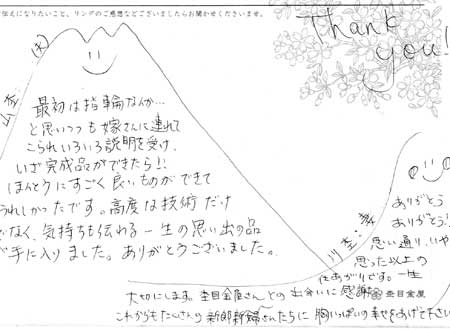 伝えになりたいこと、リングのご感想などございましたらお聞かせくださいませ。
Thank
you!
最初は指輪なんか…
と思いつつも嫁さんに連れて
こられいろいろ説明を受け、
いざ完成品ができたら!!
ほんとうにすごく良いものができて
うれしかったです。高度な技術だけ
でなく、気持ちも伝わる一生の思い出の品
が手に入りました。ありがとうございました。
ありがとう
ありがとう!!
思い通り、いや
思った以上の
仕あがりです。一生
大切にします。杢目金屋さんとの出会いに感謝
これからもたくさんの新郎新婦さんたちに胸いっぱいの幸せをあげて下さい
杢目金屋